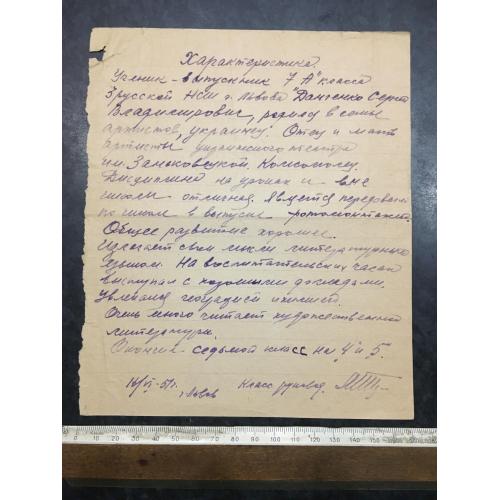 Характеристика.
Ученик-выпускник 7 "А" класса
3 русской НСШ г. Львова Данченко Сергей
Владимирович, родился в семье
артистов, украинец. Отец и мать
артисты украинского театра
им. Заньковецкой. Комсомолец.
Дисциплина на уроках и вне
школы отличная. Является
по школе в выпуске фотомонтажей.
Общее развитие хорошее.
Излагает свои мысли литературным
языком. На воспитательских часах
выступал с хорошими докладами.
Увлечение географией и
Очень много читает художественной
литературы.
Окончил седьмой класс на "4" и 5.
16/VI-51г.
г. Львов
Класс. руковод.
0 10 20 30 40 50 60 70 80 90 100 110 120 130 140 150 160 170 180 190